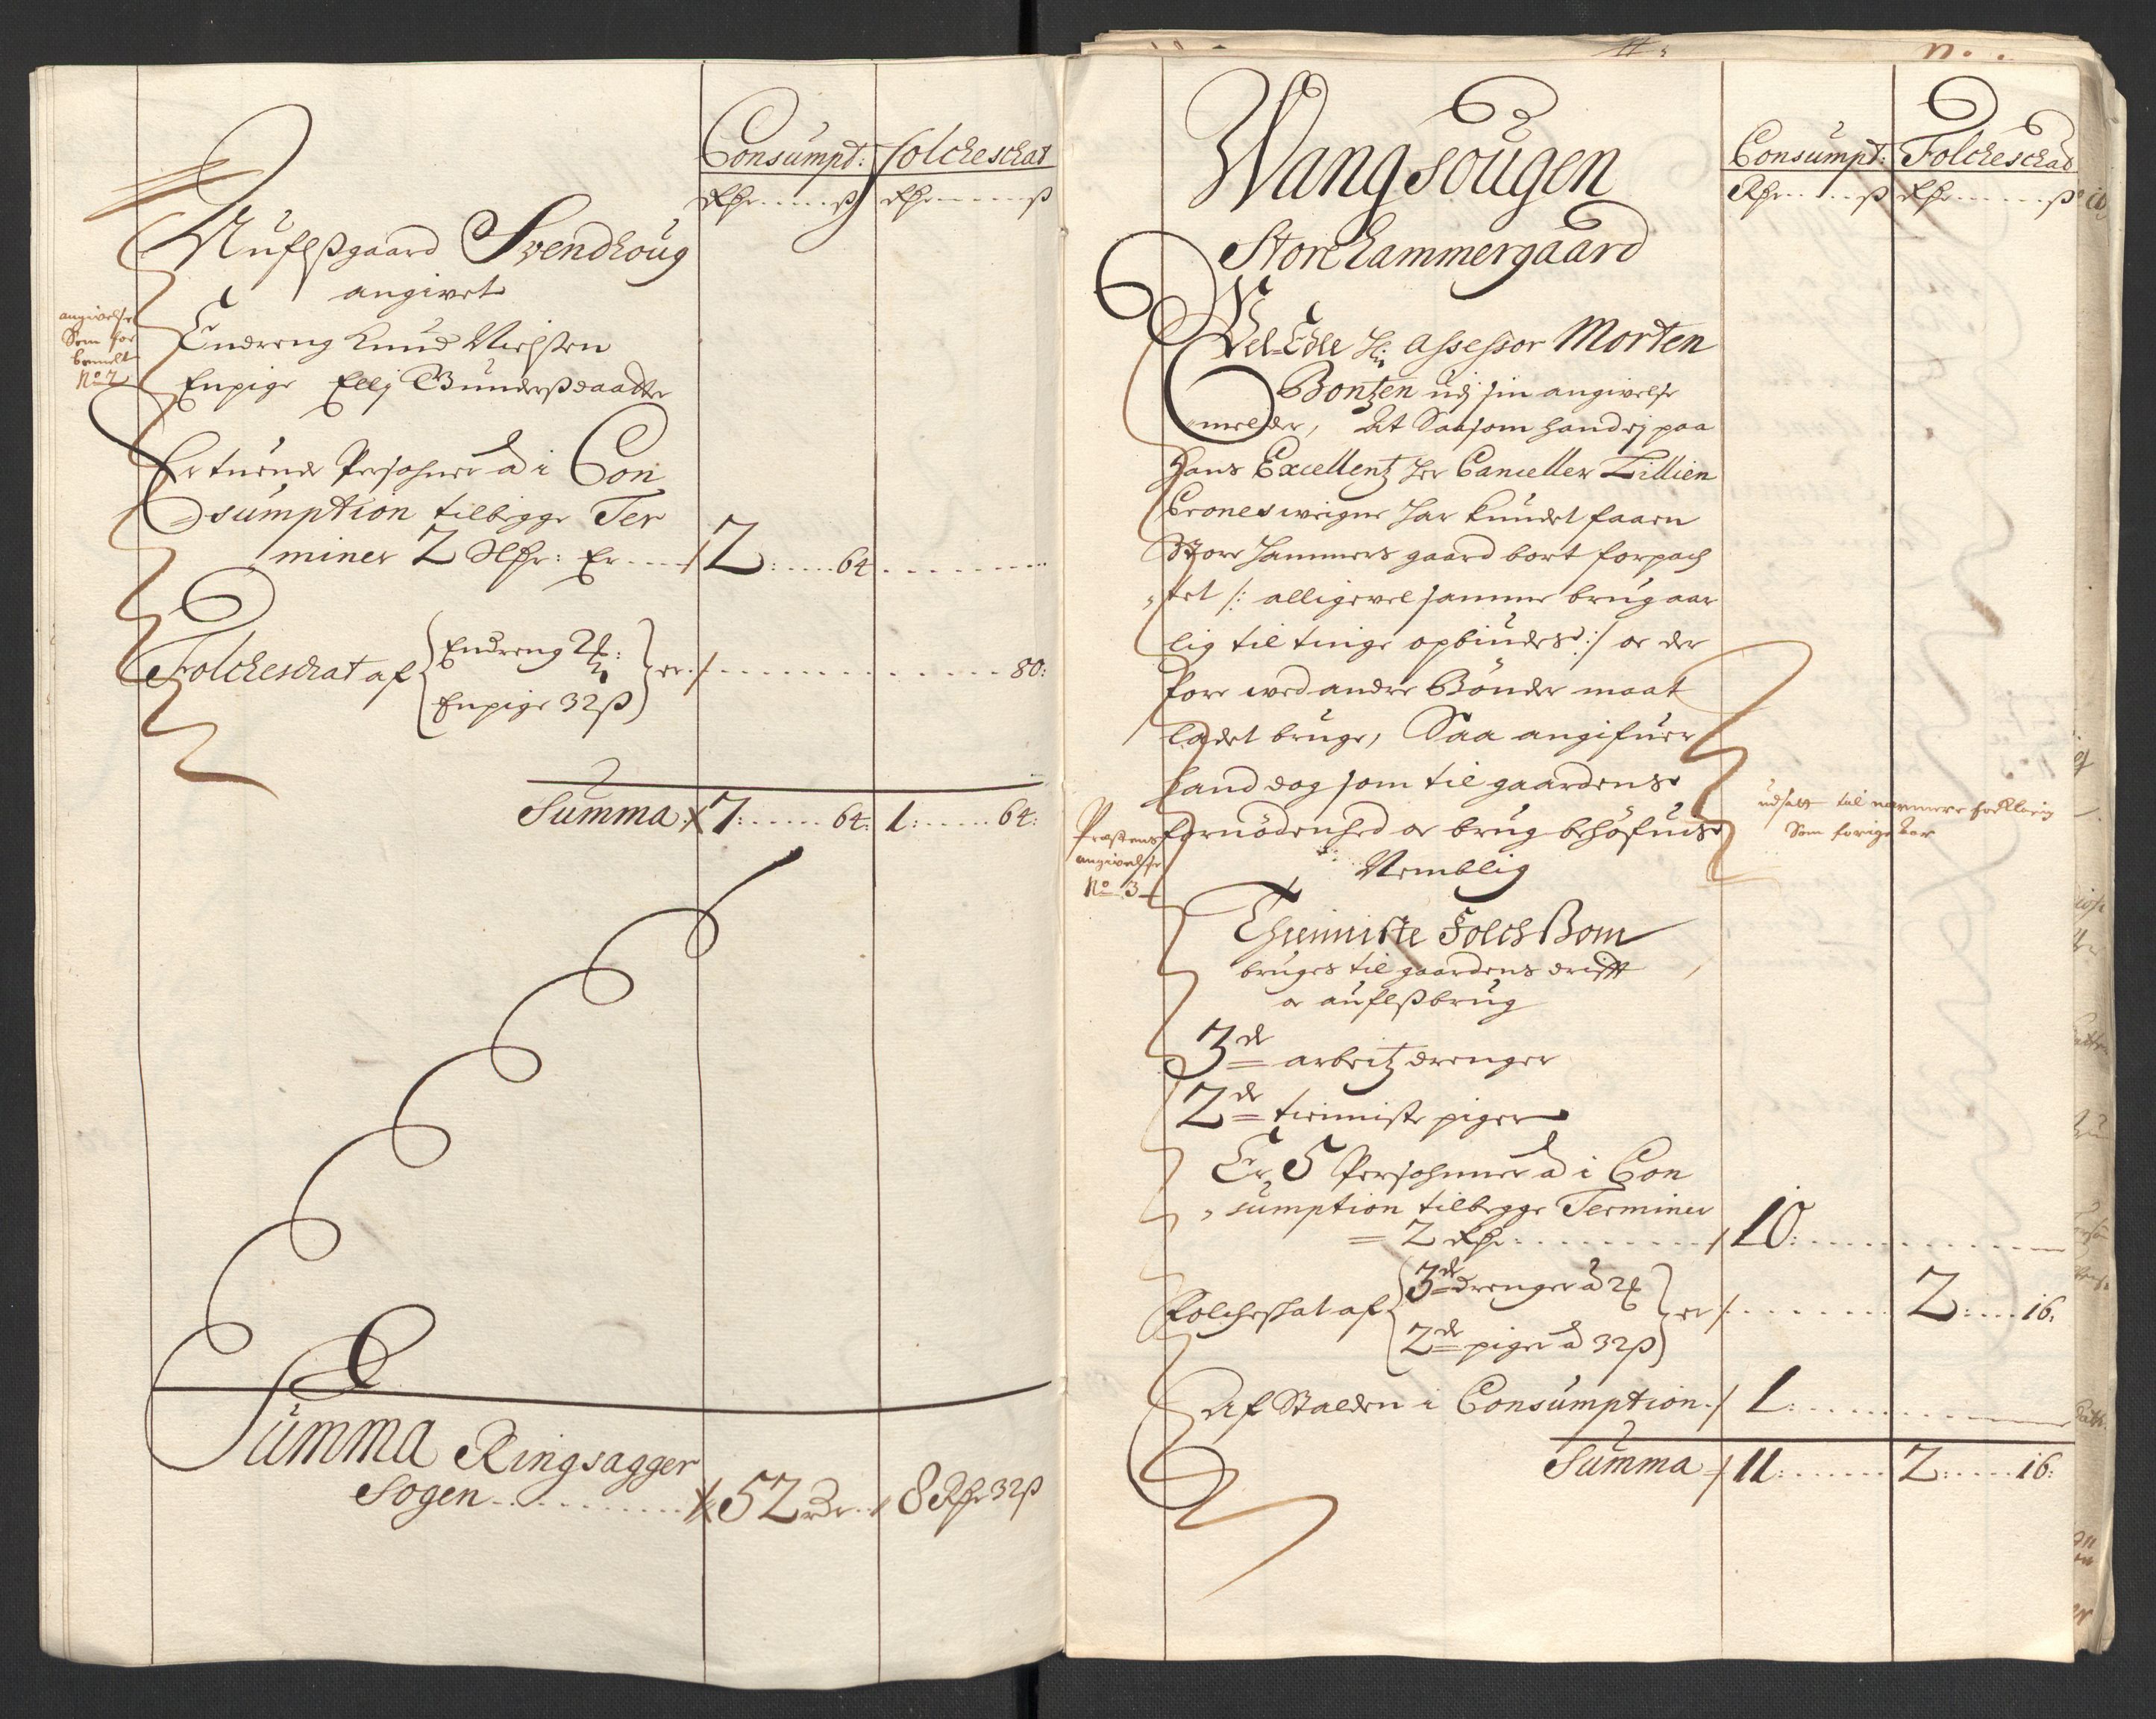 Consumpt: Folcheschat
Rdr ß Rdr ß
Aufelßgaard Svendhoug
angivet
angivelse
Som for
bemelt
No 7
En dreng Knud Nielsen
En pige Elli Gundersdaatter
Er tuende Persohner a i Con
sumption til begge Ter
miner 2 Rdr: Er 2: 64
Folcheschat af En dreng
En pige 32 ß er 80:
Summa 7: 64: 1: 64:
Summa Ringsagger
Sogen 52 8 Rdr 32 ß
Wangsougen
Consumpt: Folcheschat
Rdr ß Rdr ß
Store Hammergaard
Vel Edle Hr assessor Morten
Bontzen udj sin angivelse
melder, At Saasom hand ej paa
Hans Excellentz Her Canceller Lillien
Crones weigne har kundet faaen
Store Hammers gaard bort forpach
tet /: alligevel samme brug aar
lig til tinge opbiudes :/ og der
fore ved andre Bønder maat
ladet bruge, Saa angifuer
hand dog som til gaardens
fornødenhed og brug behøfues
Præstens
angivelse
No 3
udsatt til nærmere forklaring
Som forige aar
Nemblig
Thienniste Folch Som
bruges til gaardens drifft
og aufelßbrug
3de arbeitz drenger
2de tienniste piger
Er 5 Persohnner a i Con
sumption til begge Terminer
2 Rdr 10:
Folcheschat af 3de drenger a
2de piger a 32 ß er 2: 16:
Af Stalden i Consumption 1:
Summa 11: 2: 16: